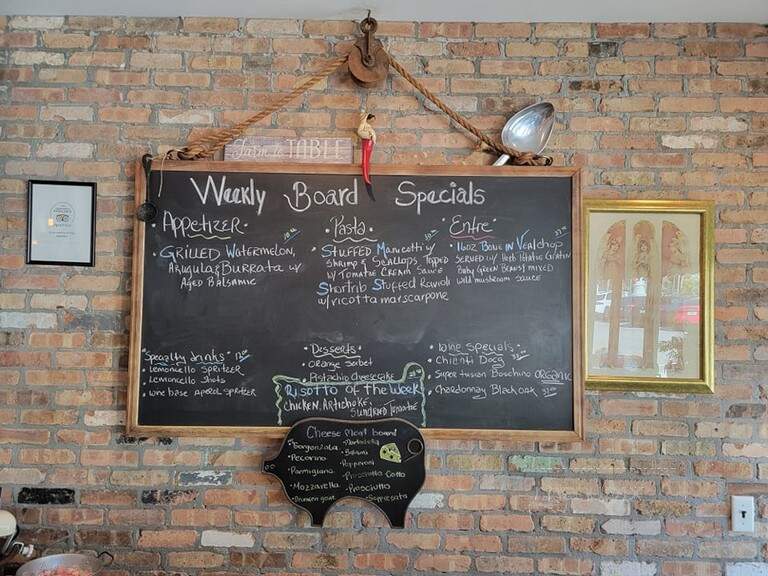 Farm to TABLE
Weekly Board Specials
Appetizer
GRILLED Watermelon,
Arugula & Burrata w/
Aged Balsamic
Pasta
STUFFED Manicotti w/
Shrimp & Scallops Topped
w/ Tomatoe Cream Sauce
Shortrib Stuffed Ravioli
w/ricotta marscarpone
Entre
16oz BONE IN Veal chop
SERVED w/ Herb
Baby Green Beans/ mixed
wild mushroom sauce
"Specialty drinks"
Lemoncello SPRITZER
Lemoncello Shots
wine base Aperol SPRITZER
Desserts
Orange Sorbet
Pistachio Cheesecake
RISOTTO OF THE WEEK
CHICKEN, ARTICHOKE,
SUNDRIED Tomatoe
Wine Specials
Chienti Docg
Super tuscan Boschino ORGANIC
Chardonnay Black oak
Cheese Meat board
Gorgonzola
Pecorino
Parmigiano
Mozzarella
Drunken goat
Mortadella
Salami
Pepperoni
Prosciutto Cotto
Prosciutto
Soppresata